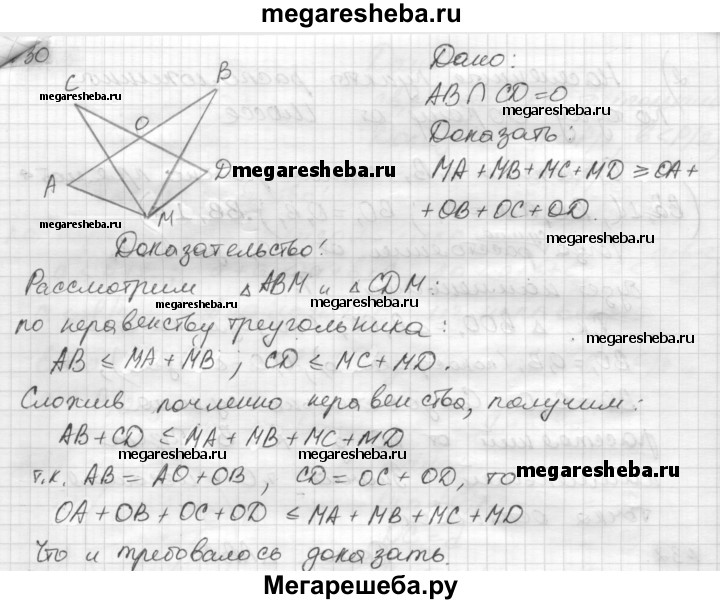 megaresheba.ru
30
Дано:
C
B
megaresheba.ru
AB ∩ CD = O
megaresheba.ru
O
Доказать:
A
D
megaresheba.ru
MA + MB + MC + MD ≥ OA +
megaresheba.ru
M
+ OB + OC + OD.
Доказательство:
Рассмотрим △ ABM и △ CDM:
megaresheba.ru
megaresheba.ru
по неравенству треугольника:
AB ≤ MA + MB ; CD ≤ MC + MD.
Сложив почленно неравенства, получим:
AB + CD ≤ MA + MB + MC + MD
megaresheba.ru
megaresheba.ru
т.к. AB = AO + OB, CD = OC + OD, то
megaresheba.ru
OA + OB + OC + OD ≤ MA + MB + MC + MD
Что и требовалось доказать.
Мегарешеба.ру